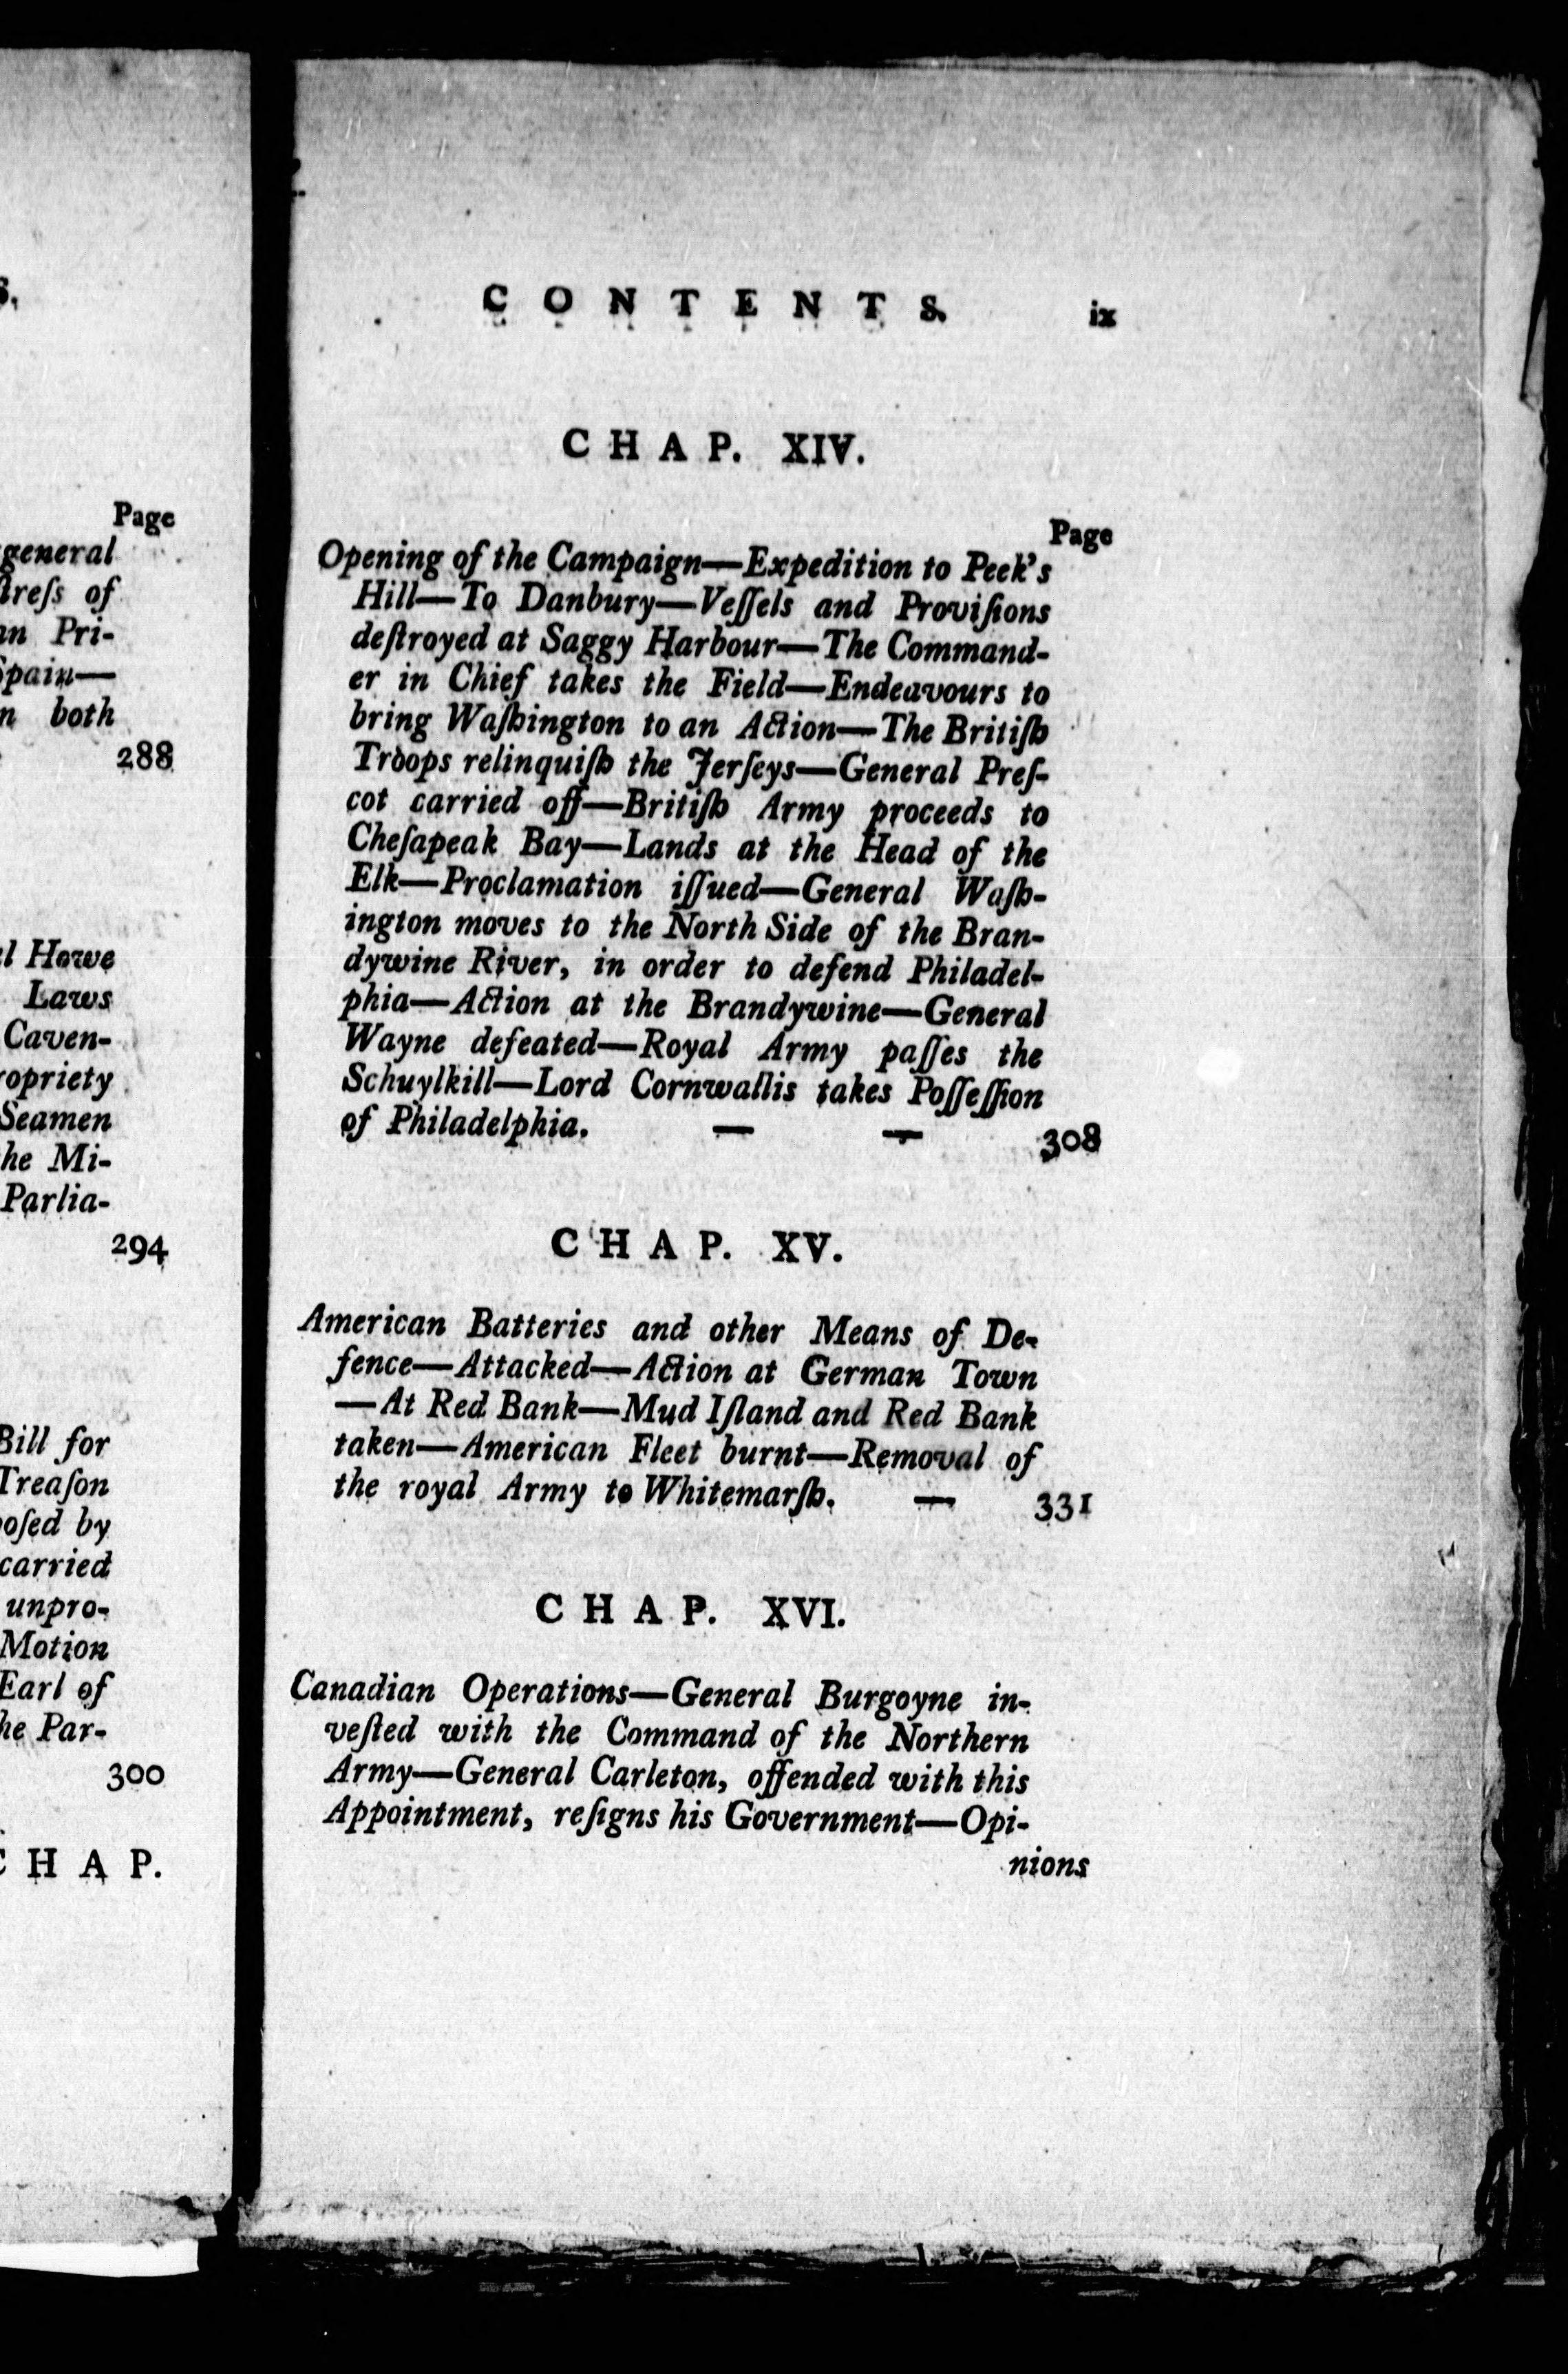 S.
Page
general
ſtreſs of
an Pri-
Spain—
n both
288
l Howe
Laws
Caven-
ropriety
Seamen
he Mi-
Parlia-
294
Bill for
Treaſon
poſed by
carried
unpro-
Motion
Earl of
he Par-
300
CHAP.
CONTENTS. ix
CHAP. XIV.
Page
Opening of the Campaign—Expedition to Peek's
Hill—To Danbury—Veſſels and Proviſions
deſtroyed at Saggy Harbour—The Command-
er in Chief takes the Field—Endeavours to
bring Waſhington to an Action—The Britiſh
Troops relinquiſh the Jerſeys—General Preſ-
cot carried off—Britiſh Army proceeds to
Cheſapeak Bay—Lands at the Head of the
Elk—Proclamation iſſued—General Waſh-
ington moves to the North Side of the Bran-
dywine River, in order to defend Philadel-
phia—Action at the Brandywine—General
Wayne defeated—Royal Army paſſes the
Schuylkill—Lord Cornwallis takes Poſſeſſion
of Philadelphia. — — 308
CHAP. XV.
American Batteries and other Means of De-
fence—Attacked—Action at German Town
—At Red Bank—Mud Iſland and Red Bank
taken—American Fleet burnt—Removal of
the royal Army to Whitemarſh. — 331
CHAP. XVI.
Canadian Operations—General Burgoyne in-
veſted with the Command of the Northern
Army—General Carleton, offended with this
Appointment, reſigns his Government—Opi-
nions